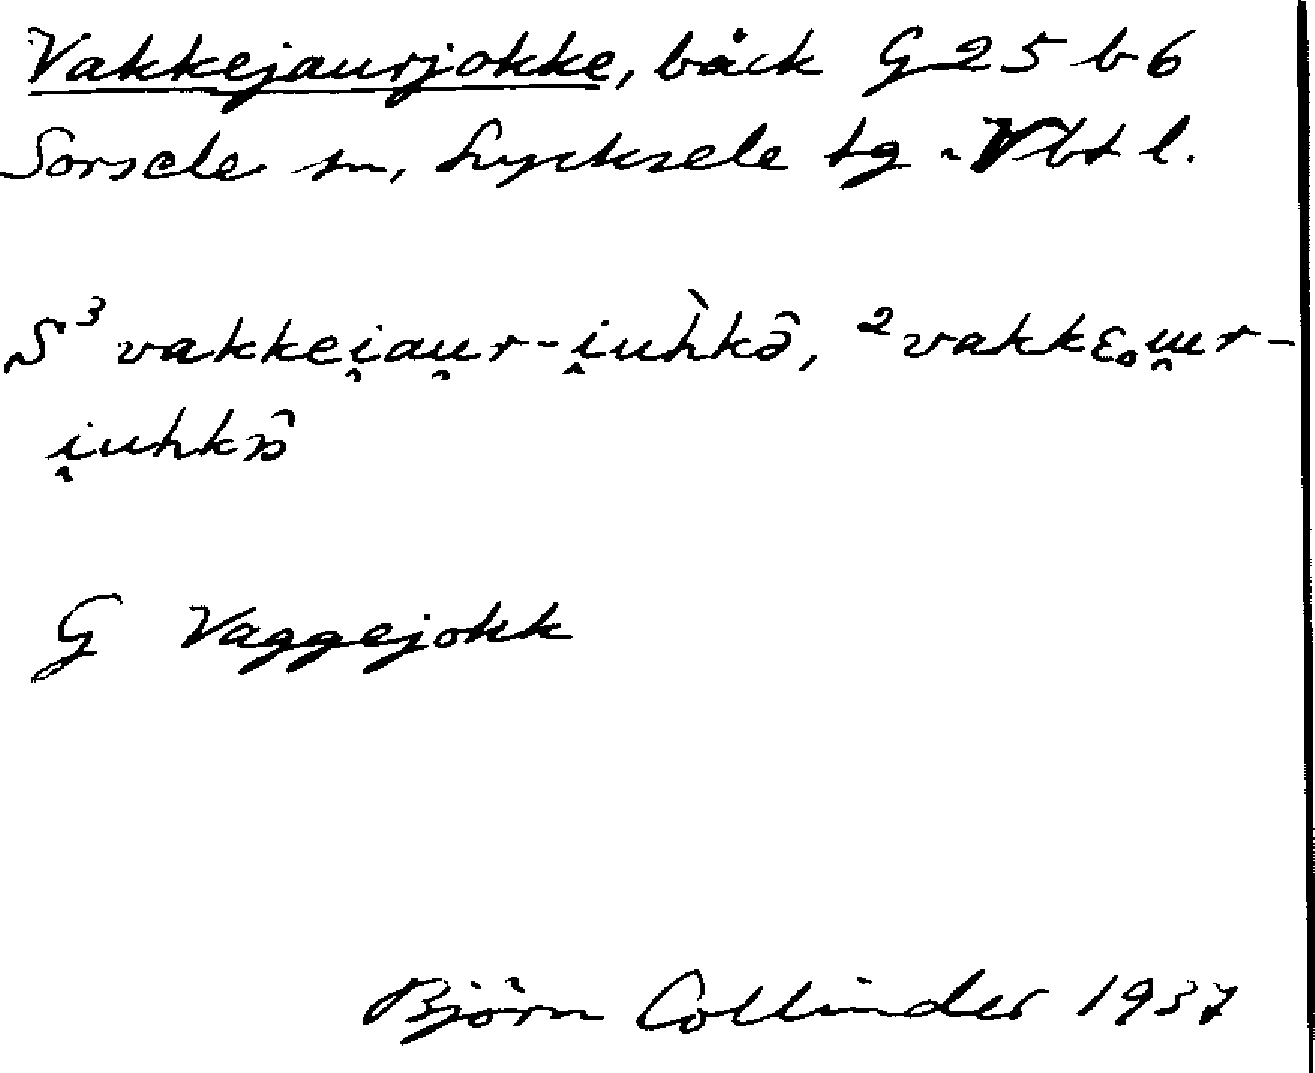 Vakkejaurjokke, bäck G 25 b 6
Sorsele sn, Lycksele tg. Vbtl.
S ³vakkei̯au̯r-i̯uh̀kə̂, ²vakkɛ
i̯uhk
G Vaggejokk
Björn Collinder 1937